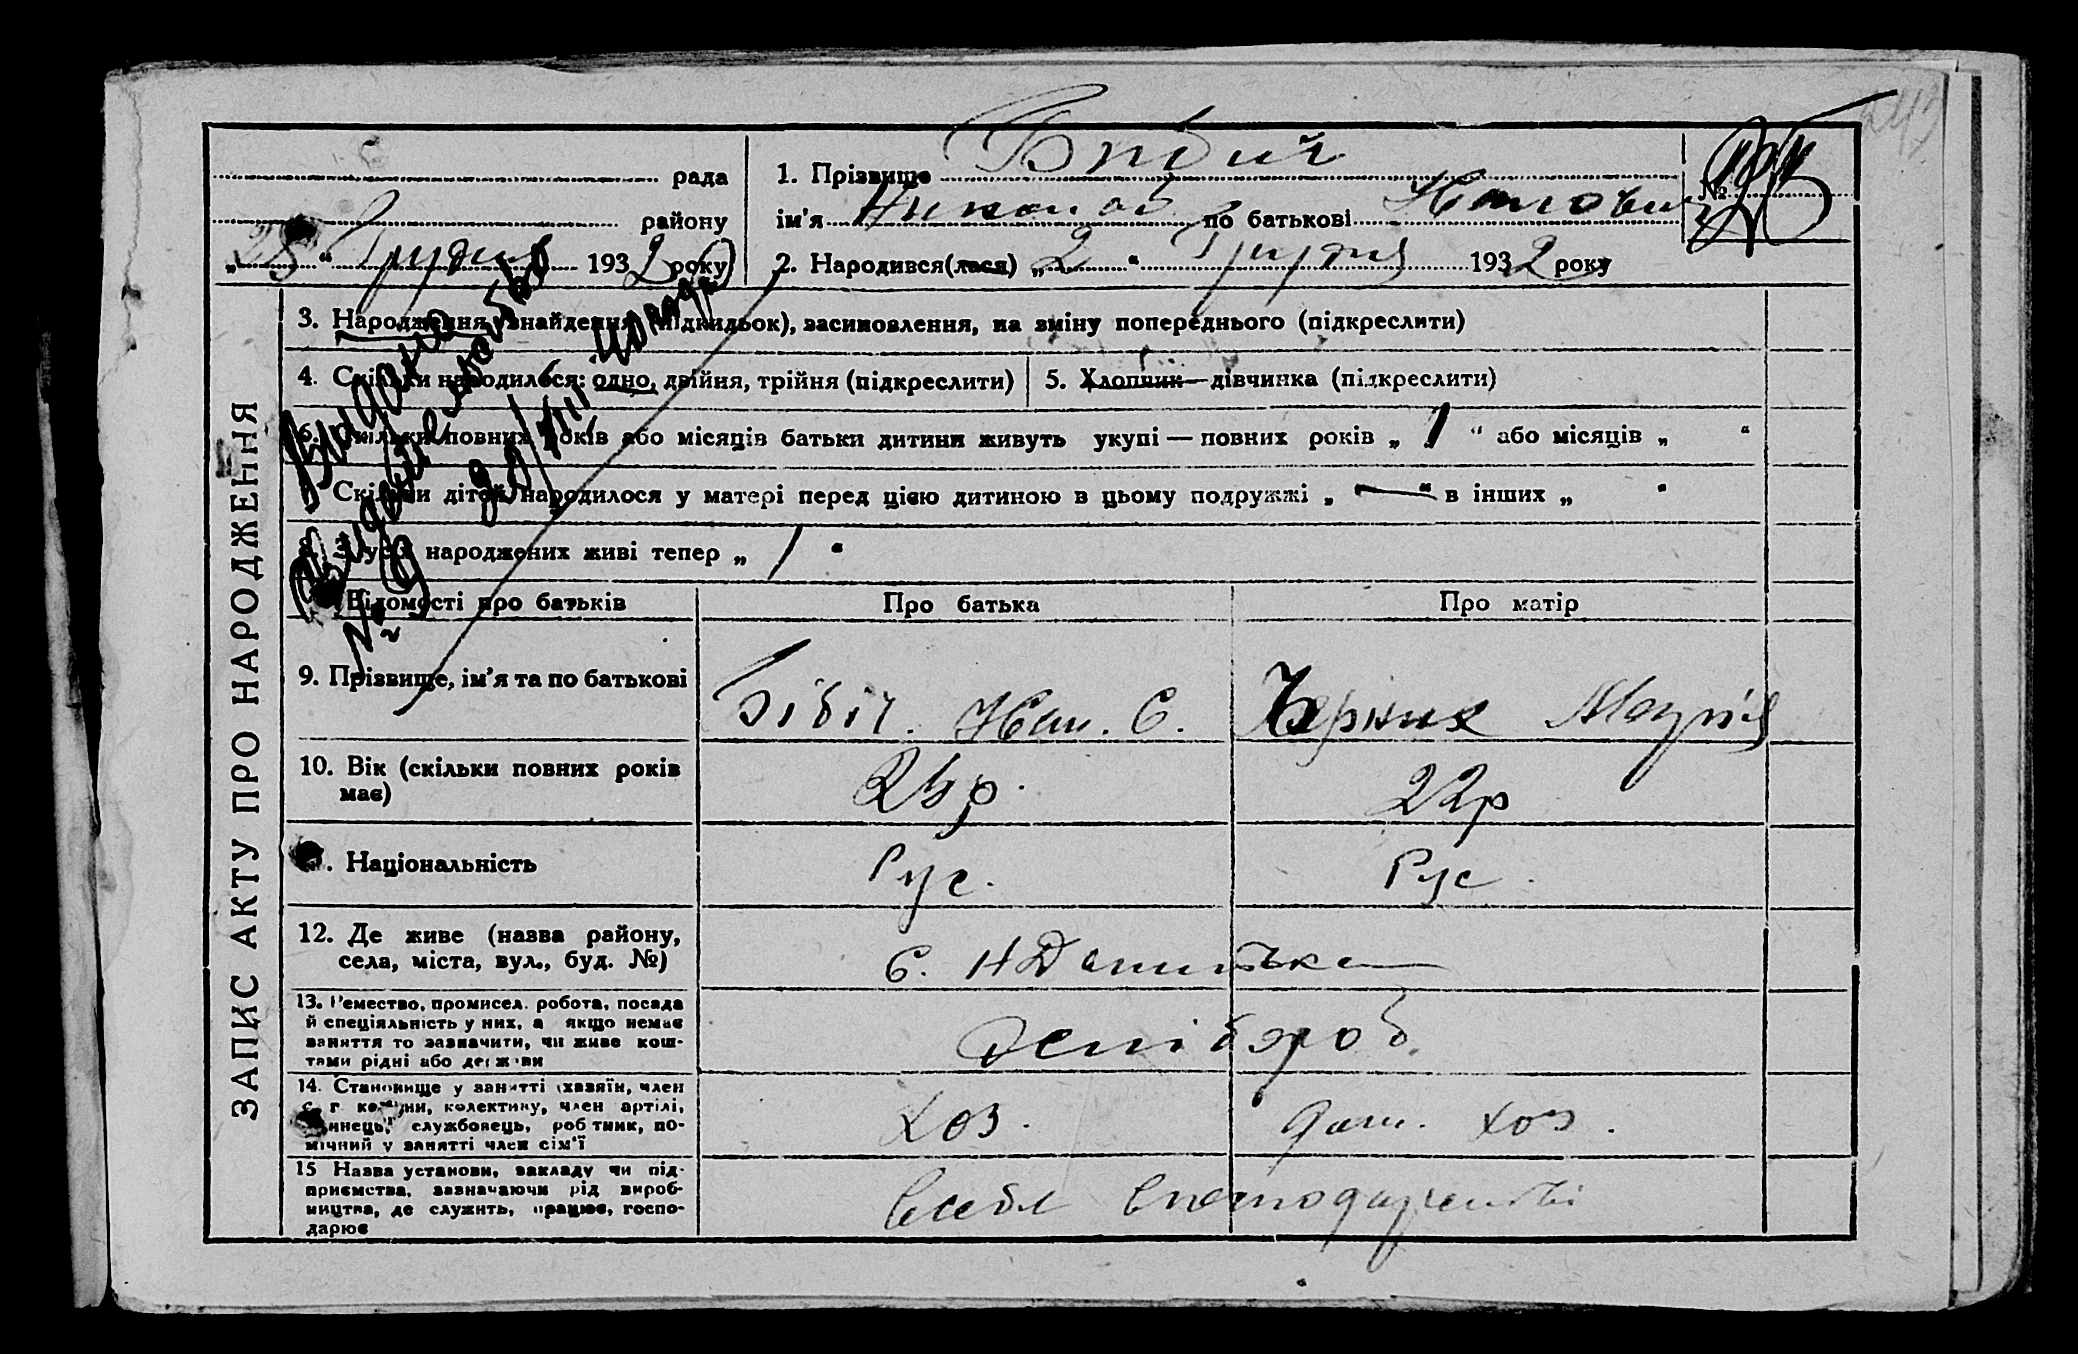 рада
району
„28“ Грудня 1932 року
1. Прізвище Бибич
ім'я Николай по батькові
№
2. Народився(лася) „2“ Грудня 1932 року
ЗАПИС АКТУ ПРО НАРОДЖЕННЯ
3. Народження, знайдення (підкидьок), засиновлення, на зміну попереднього (підкреслити)
4. Скільки народилося: одно, двійня, трійня (підкреслити)
5. Хлопчик—дівчинка (підкреслити)
6. Скільки повних років або місяців батьки дитини живуть укупі — повних років „1“ або місяців „ “
Скільки дітей народилося у матері перед цією дитиною в цьому подружжі „—“ в інших „ “
З усіх народжених живі тепер „1“
Видано
Відомості про батьків
Про батька
Про матір
9. Прізвище, ім'я та по батькові
Бібіч. Ив. С.
Марія
10. Вік (скільки повних років має)
р.
22р
. Національність
Рус.
Рус.
12. Де живе (назва району, села, міста, вул., буд. №)
с. Н
13. Ремество, промисел. робота, посада й спеціяльність у них, а якщо немає заняття то зазначити, чи живе коштами рідні або держави
хлібороб
14. Становище у занятті (хазяїн, член с. г комуни, колективу, член артілі, одинець, службовець, робітник, помічний у занятті член сім'ї
хоз.
дом. хоз.
15 Назва установи, закладу чи підприємства, зазначаючи рід виробництва, де служить, працює, господарює